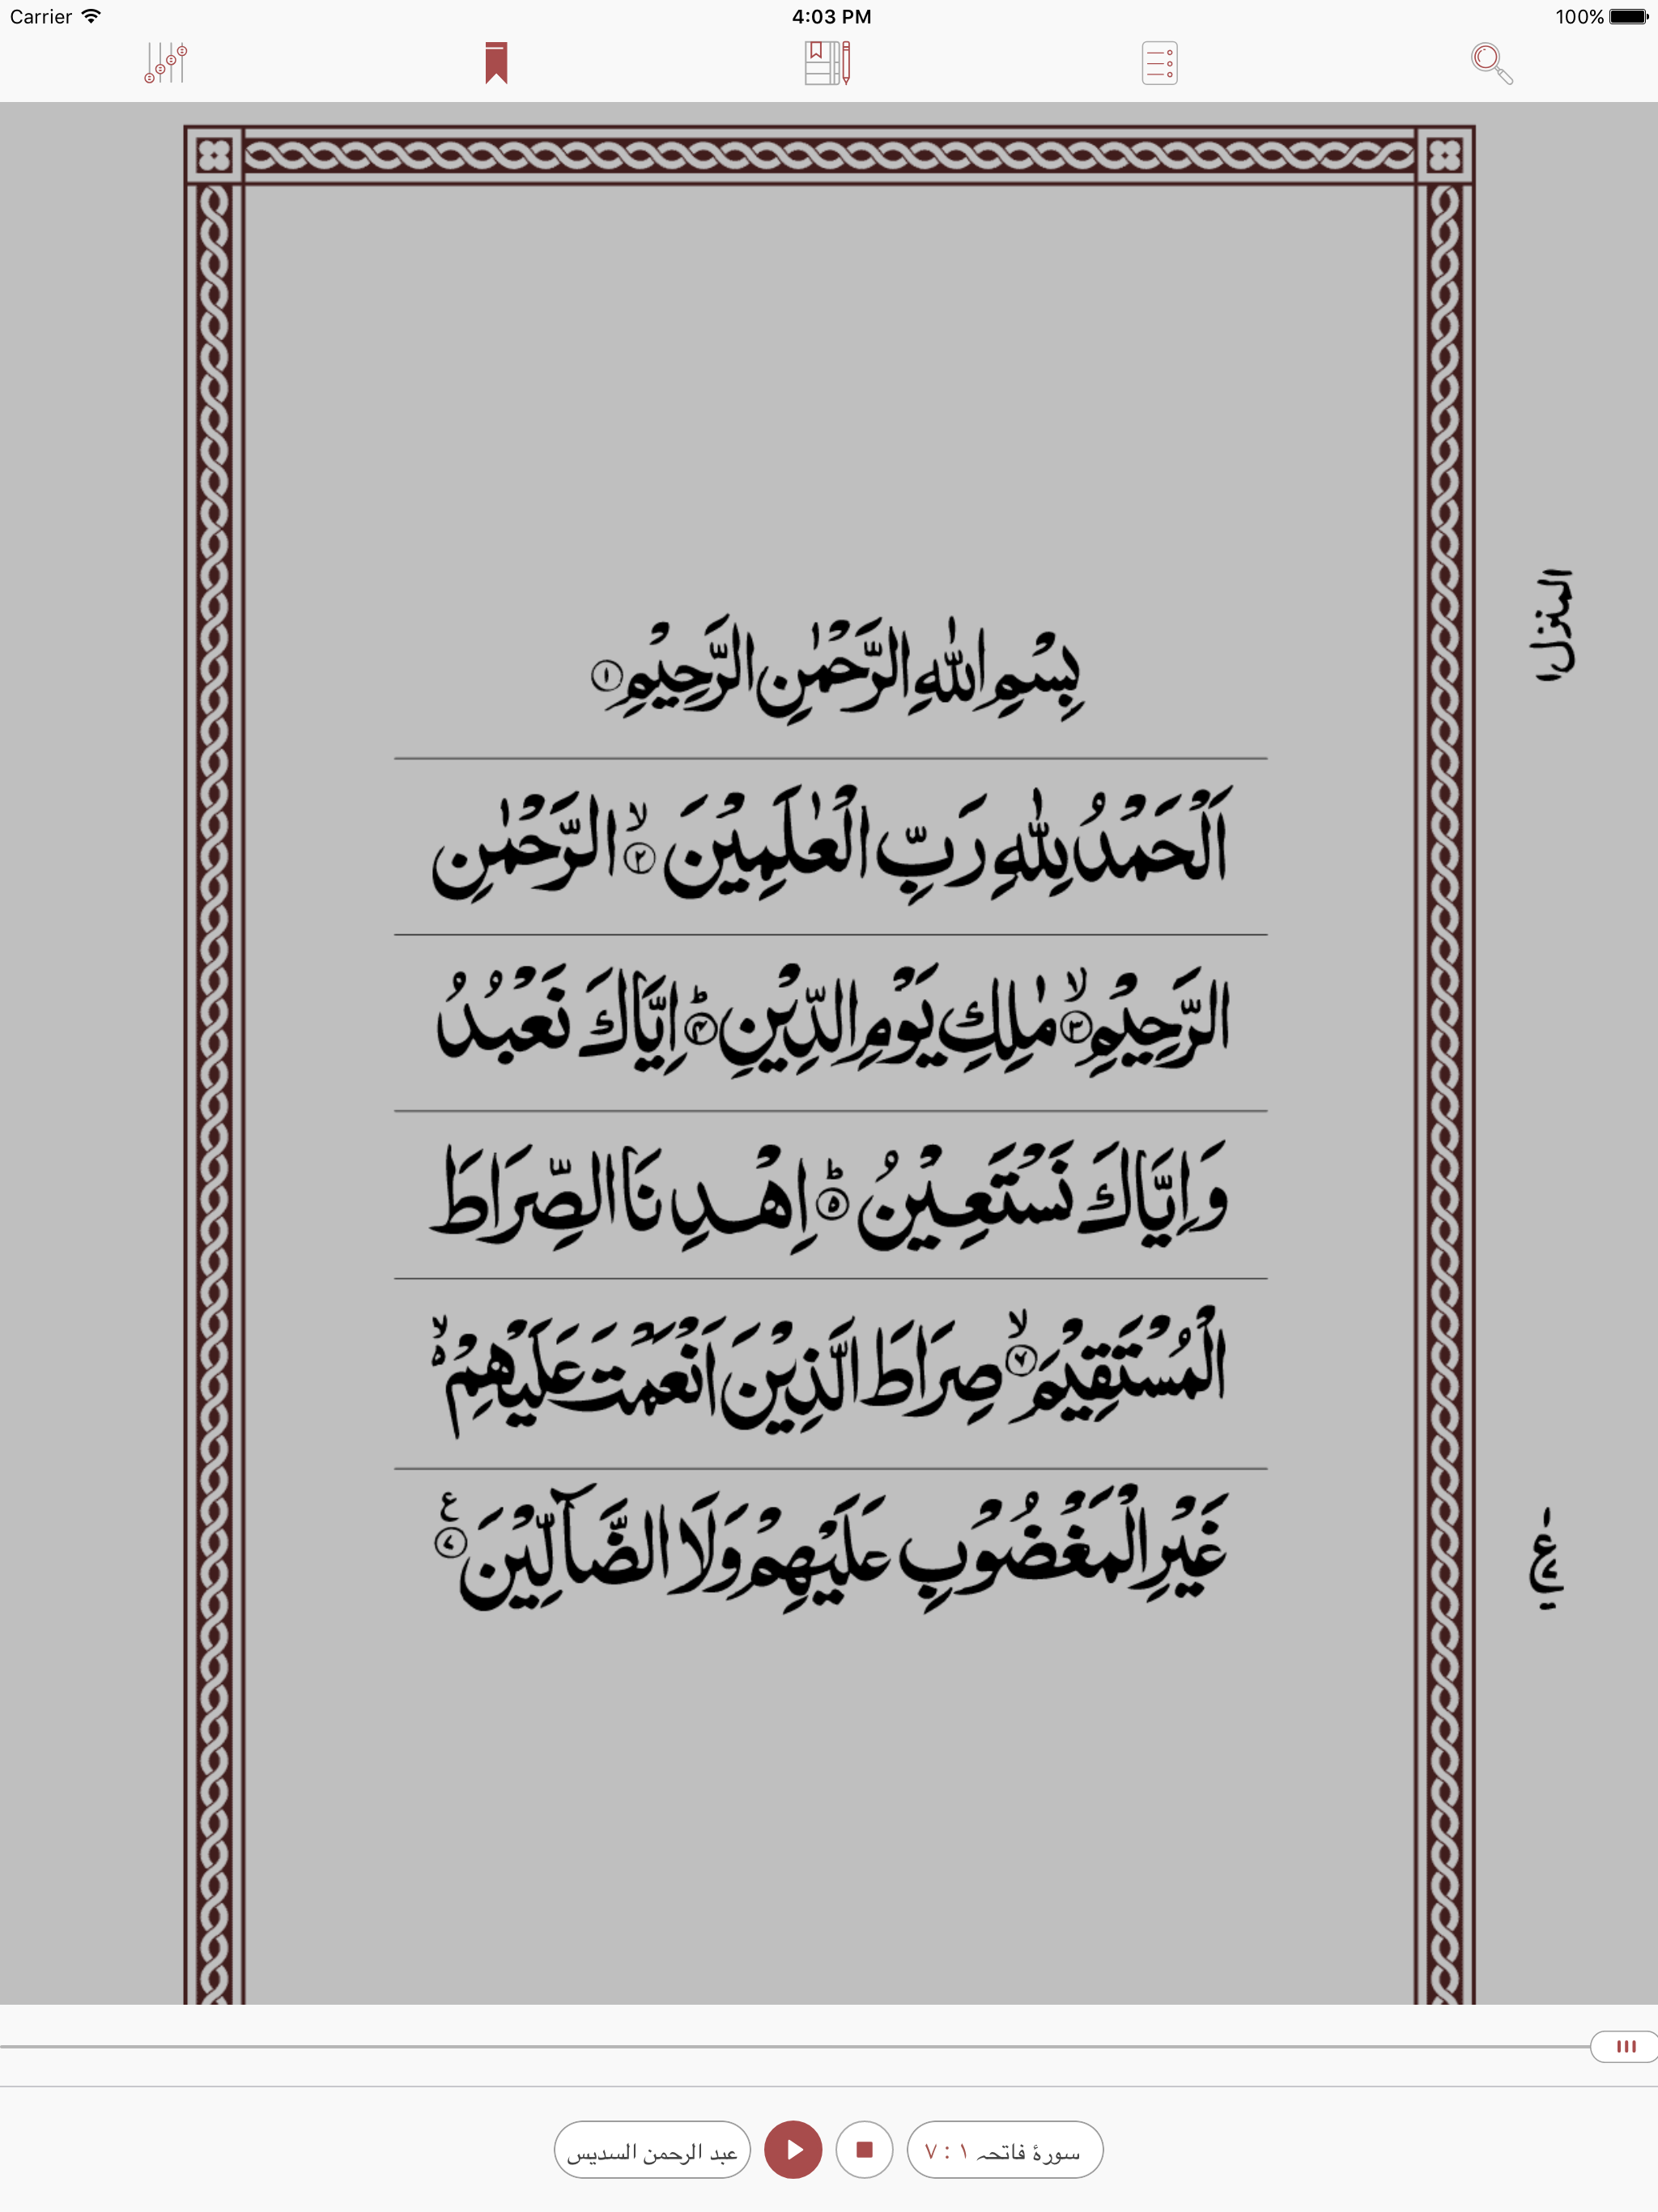 Carrier 4:03 PM 100%
بِسْمِ اللّٰهِ الرَّحْمٰنِ الرَّحِيْمِ ①
اَلْحَمْدُ لِلّٰهِ رَبِّ الْعٰلَمِيْنَ ۙ﴿۲﴾ الرَّحْمٰنِ
الرَّحِيْمِ ۙ﴿۳﴾ مٰلِكِ يَوْمِ الدِّيْنِ ؕ﴿۴﴾ اِيَّاكَ نَعْبُدُ
وَاِيَّاكَ نَسْتَعِيْنُ ؕ﴿۵﴾ اِهْدِنَا الصِّرَاطَ
الْمُسْتَقِيْمَ ۙ﴿۶﴾ صِرَاطَ الَّذِيْنَ اَنْعَمْتَ عَلَيْهِمْ ۙ۬
غَيْرِ الْمَغْضُوْبِ عَلَيْهِمْ وَلَا الضَّآلِّيْنَ ﴿۷﴾ ع
المنزل ا
عبد الرحمن السديس
سورۂ فاتحہ ١ : ٧